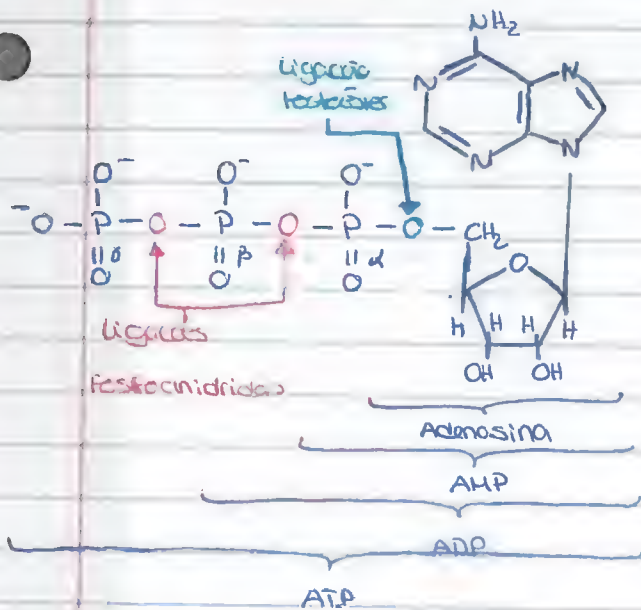 NH₂
Ligação
fosfoéster
N N
N N
O⁻ O⁻ O⁻
⁻O P O P O P O CH₂
γ β α O
O O O
H H H H
Ligação
OH OH
fosfoanidridas
Adenosina
AMP
ADP
ATP